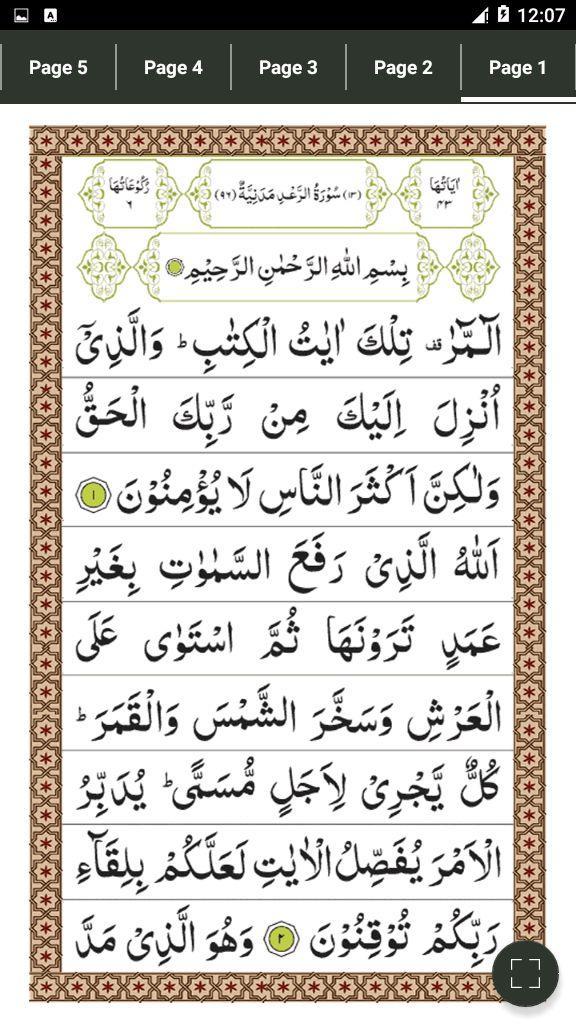 12:07
Page 5 Page 4 Page 3 Page 2 Page 1
اٰيَاتُهَا ٤٣ (١٣) سُوْرَةُ الرَّعْدِ مَدَنِيَّةٌ (٩٦) رُكُوْعَاتُهَا ٦
بِسْمِ اللّٰهِ الرَّحْمٰنِ الرَّحِيْمِ
الٓمّٓرٰ قف تِلْكَ اٰيٰتُ الْكِتٰبِ ؕ وَالَّذِىْۤ
اُنْزِلَ اِلَيْكَ مِنْ رَّبِّكَ الْحَقُّ
وَلٰكِنَّ اَكْثَرَ النَّاسِ لَا يُؤْمِنُوْنَ ١
اَللّٰهُ الَّذِىْ رَفَعَ السَّمٰوٰتِ بِغَيْرِ
عَمَدٍ تَرَوْنَهَا ثُمَّ اسْتَوٰى عَلَى
الْعَرْشِ وَسَخَّرَ الشَّمْسَ وَالْقَمَرَ ؕ
كُلٌّ يَّجْرِىْ لِاَجَلٍ مُّسَمًّى ؕ يُدَبِّرُ
الْاَمْرَ يُفَصِّلُ الْاٰيٰتِ لَعَلَّكُمْ بِلِقَآءِ
رَبِّكُمْ تُوْقِنُوْنَ ٢ وَهُوَ الَّذِىْ مَدَّ